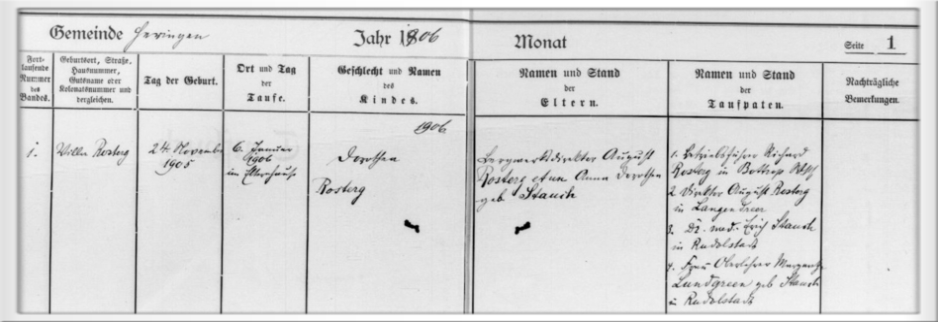 Gemeinde Heringen
Jahr 1906
Monat
Seite 1
Fort-
laufende
Nummer
des
Bandes.
Geburtsort, Straße,
Hausnummer,
Gutsname oder
Kolonatsnummer und
dergleichen.
Tag der Geburt.
Ort und Tag
der
Taufe.
Geschlecht und Namen
des
Kindes.
Namen und Stand
der
Eltern.
Namen und Stand
der
Taufpaten.
Nachträgliche
Bemerkungen.
1906
1.
Villa Rosterg
24. November
1905
6. Januar
1906
im Elternhause
Dorothea
Rosterg
Bergwerksdirektor August
Rosterg et ux. Anna Dorothea
geb. Stauch
1. Betriebsführer Richard
Rosterg in Bottrop
2. Direktor August Rosterg
in Langendreer
3. Dr. med. Erich Stauch
in Rudolstadt
4. Frau Oberlehrer
Lundgreen geb. Stauch
in Rudolstadt